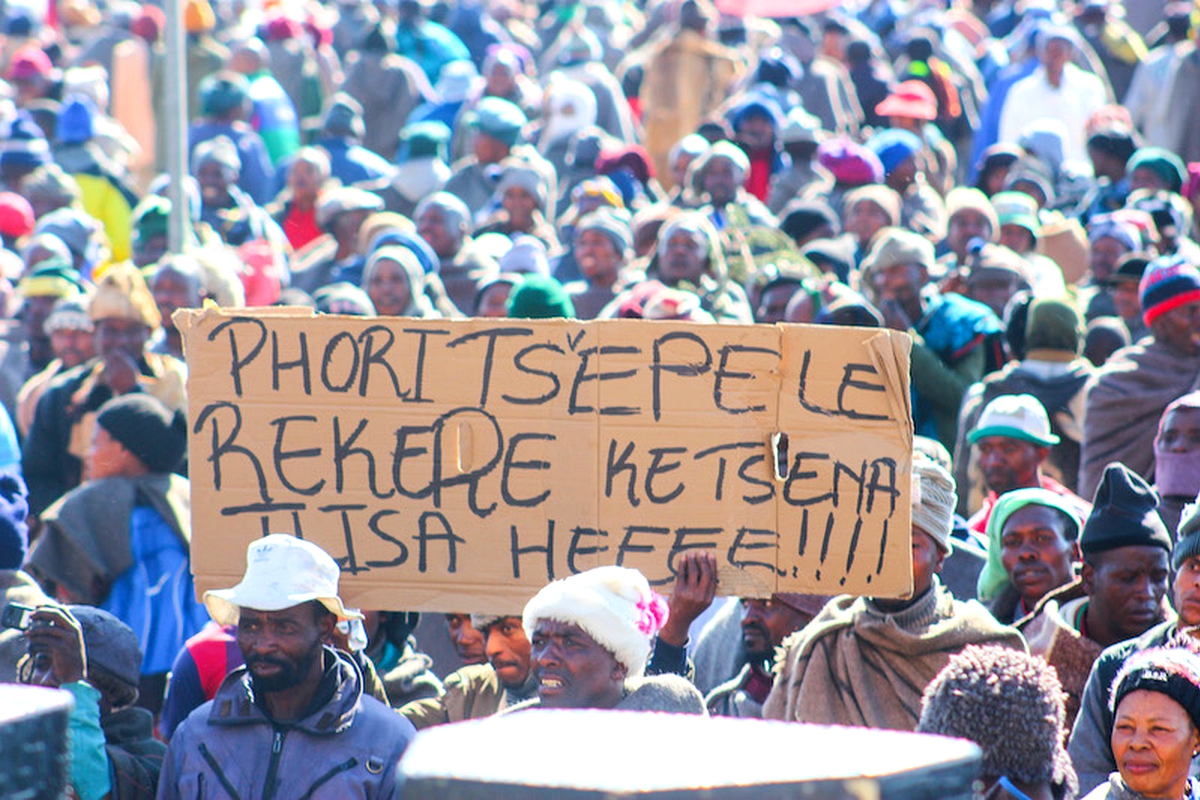 PHORI TS'EPE LE
REKERE KE TS'ENA
TLISA HEEEE!!!!